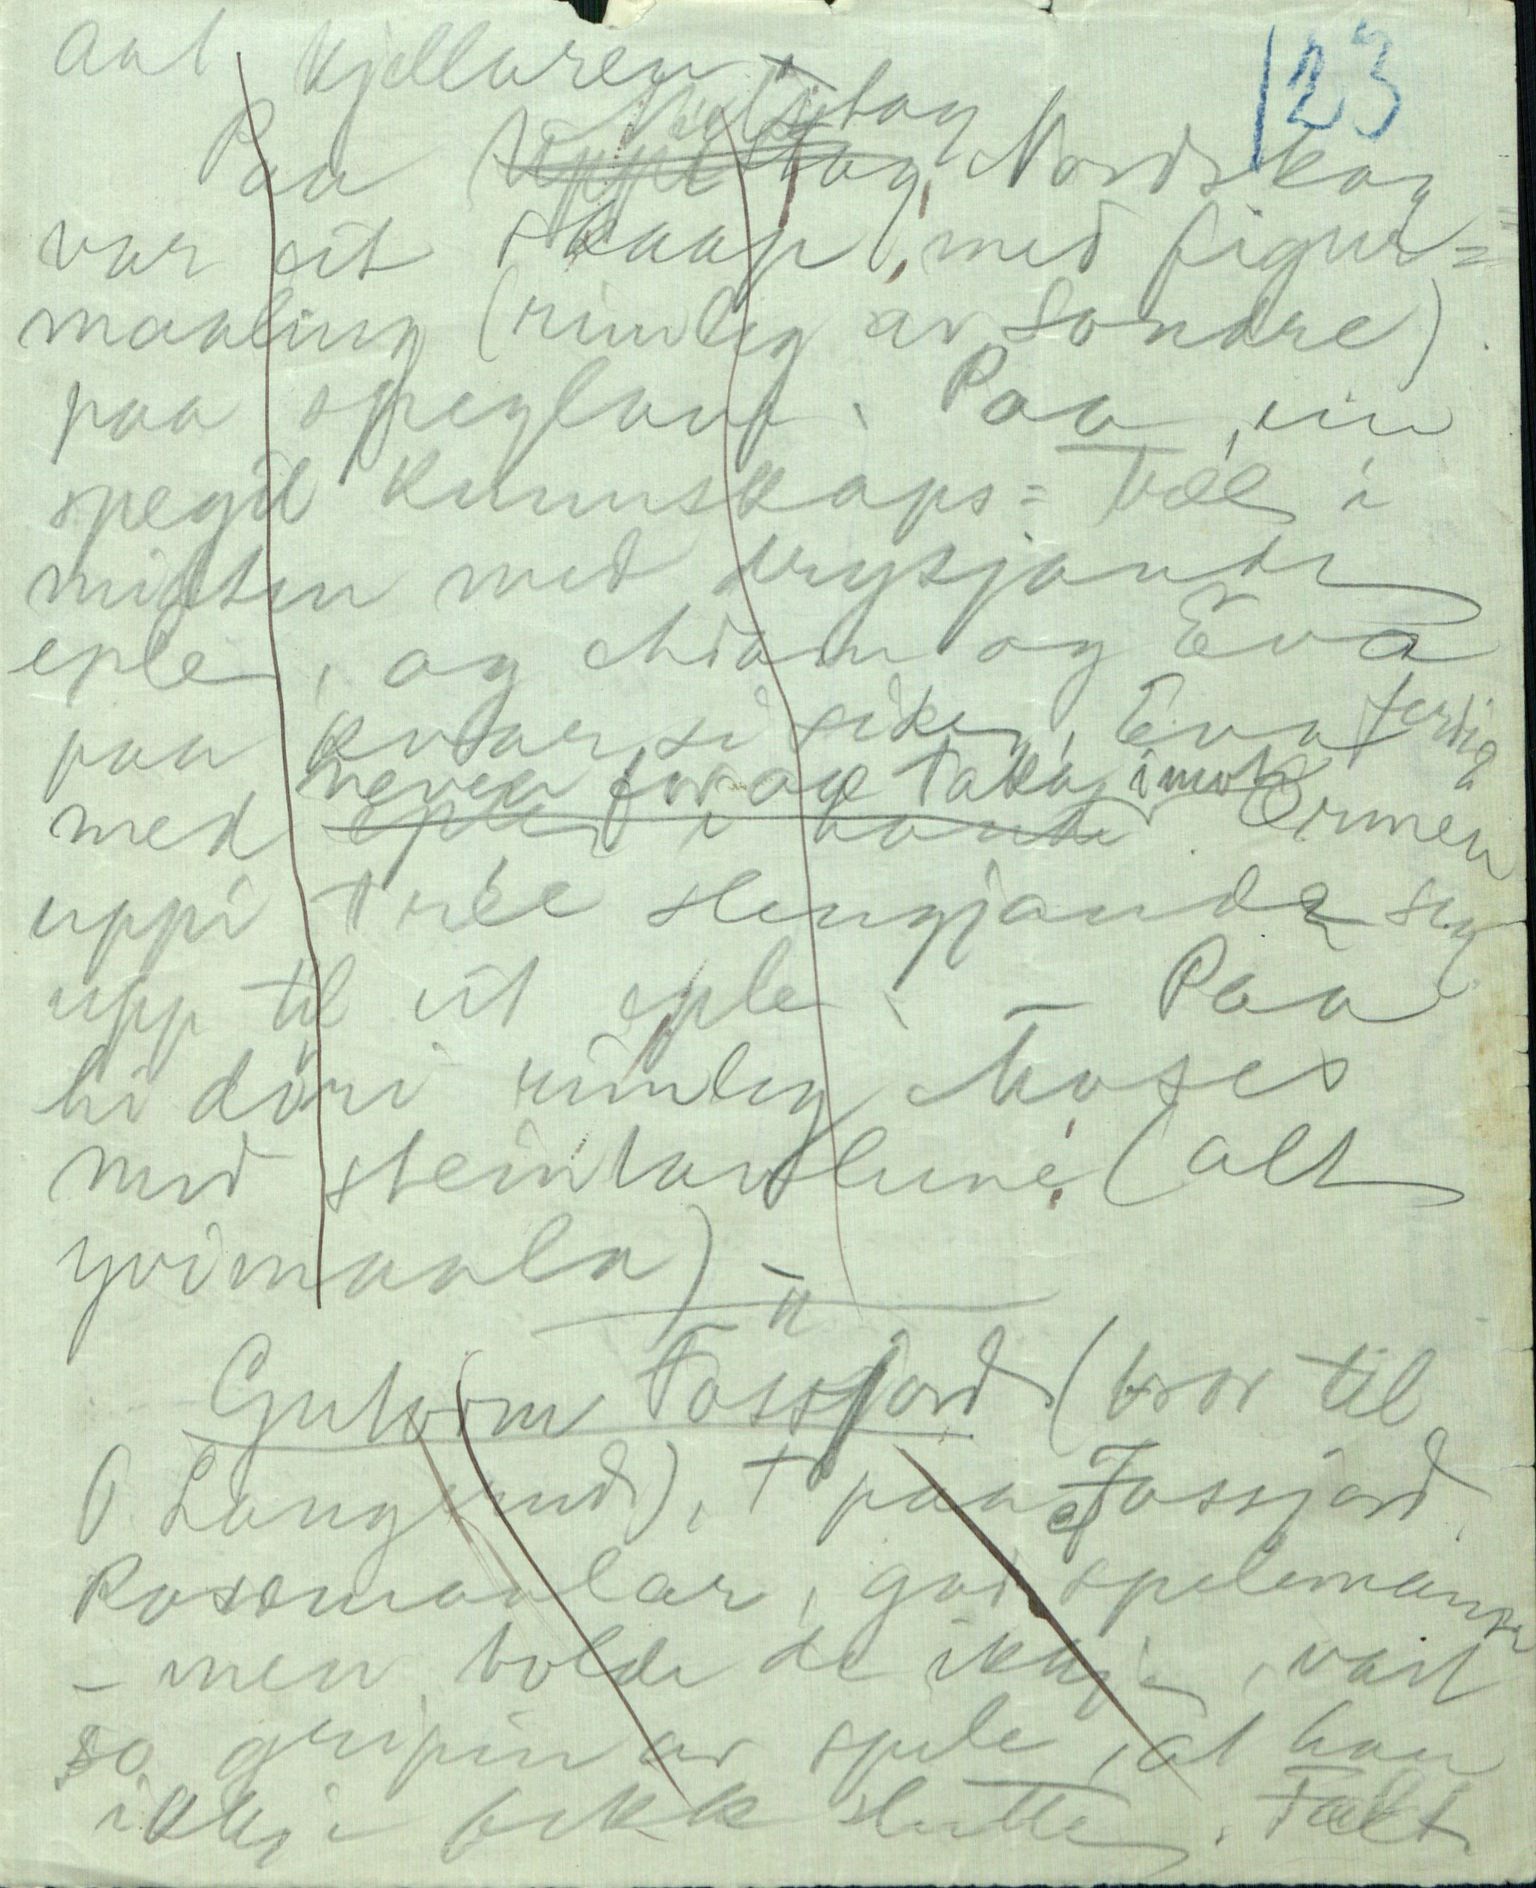 123
aat kjellaren. -
Paa Nordskog
var eit skaap, med figur=
maaling (rimleg av Sondre)
paa speglane. Paa ein
spegil Kunnskaps=træe i
midten med drysjande
eple, og Adam og Eva
paa kvar si sike, Eva ferdig
med neven for aa taka imot
eplet i handi. Ormen
uppi trée slengjande seg
upp til eit eple. - Paa
hi döri rimleg Moses
med steintavlune (alt
yvimaala) -
Guttorm Fossjord (bror til
O Langerud), † paa Fossjord.
Rosemaalar, god spelemann
- men tolde de ikkje, vart
so gripin av spele, at han
ikkje fekk slutte. Fælt